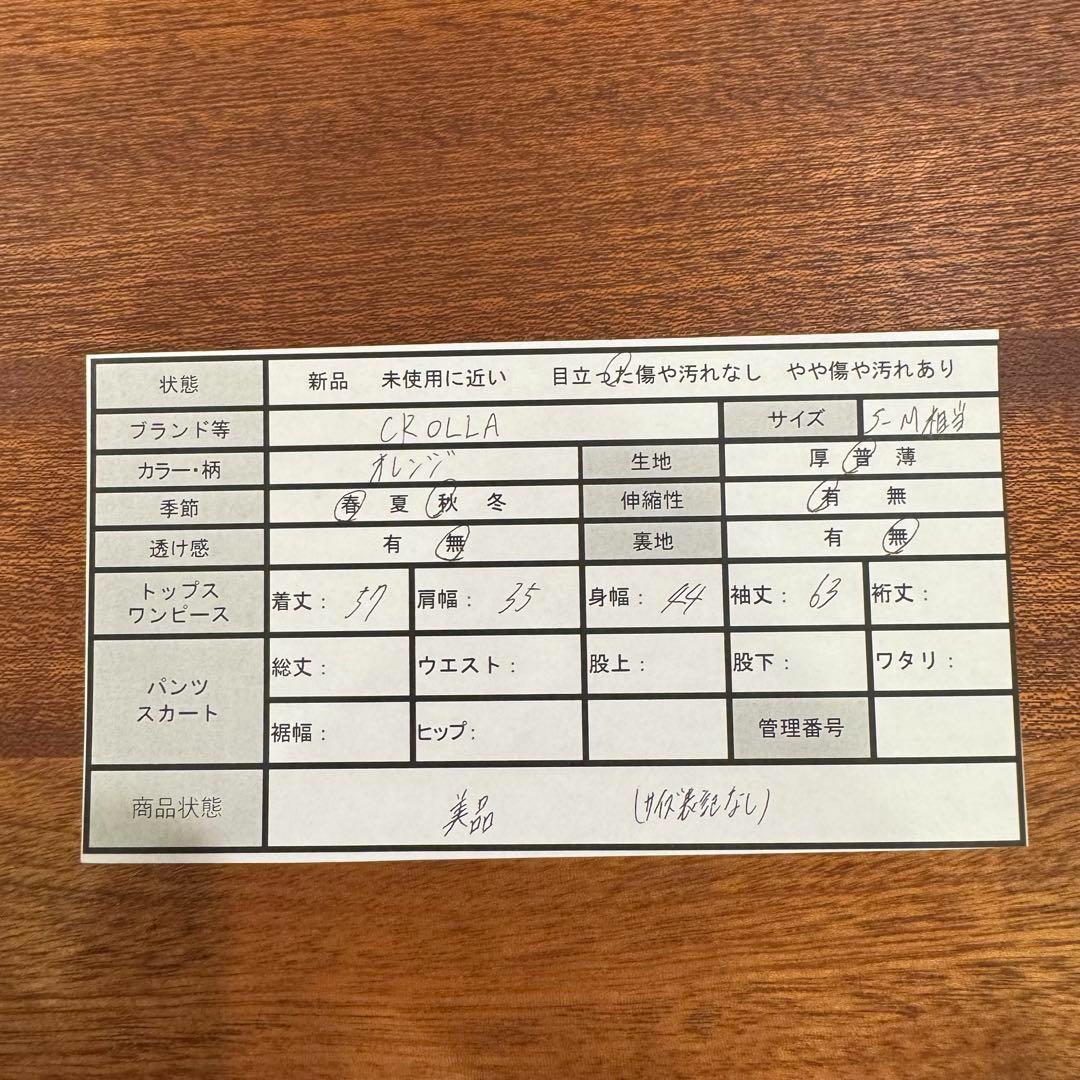 状態 新品 未使用に近い 目立った傷や汚れなし やや傷や汚れあり
ブランド等 CROLLA サイズ S-M相当
カラー・柄 オレンジ 生地 厚 普 薄
季節 春 夏 秋 冬 伸縮性 有 無
透け感 有 無 裏地 有 無
トップス
ワンピース
着丈: 57 肩幅: 35 身幅: 44 袖丈: 63 裄丈:
パンツ
スカート
総丈: ウエスト: 股上: 股下: ワタリ:
裾幅: ヒップ: 管理番号
商品状態 美品 (サイズ表記なし)